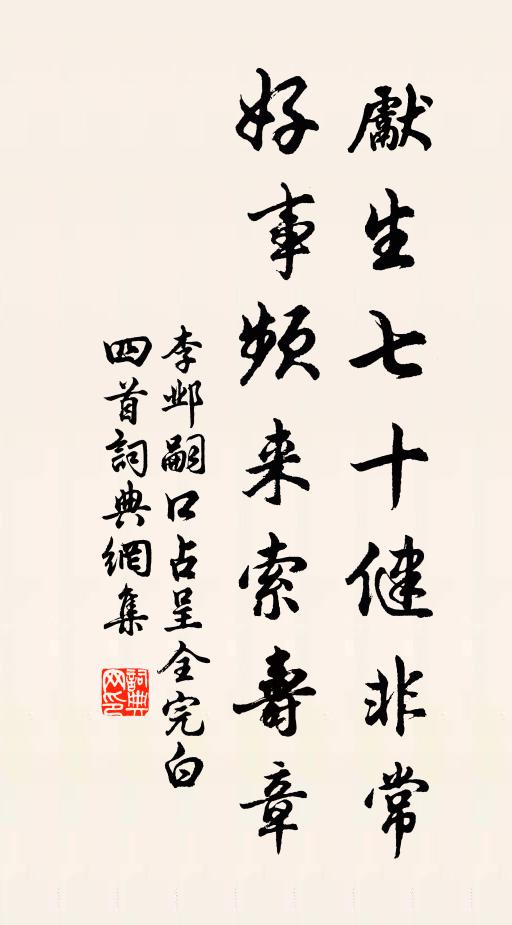 獻生七十健非常
好事頻来索壽章
李邺嗣口占呈全完白
四首詞典網集
詞典网印